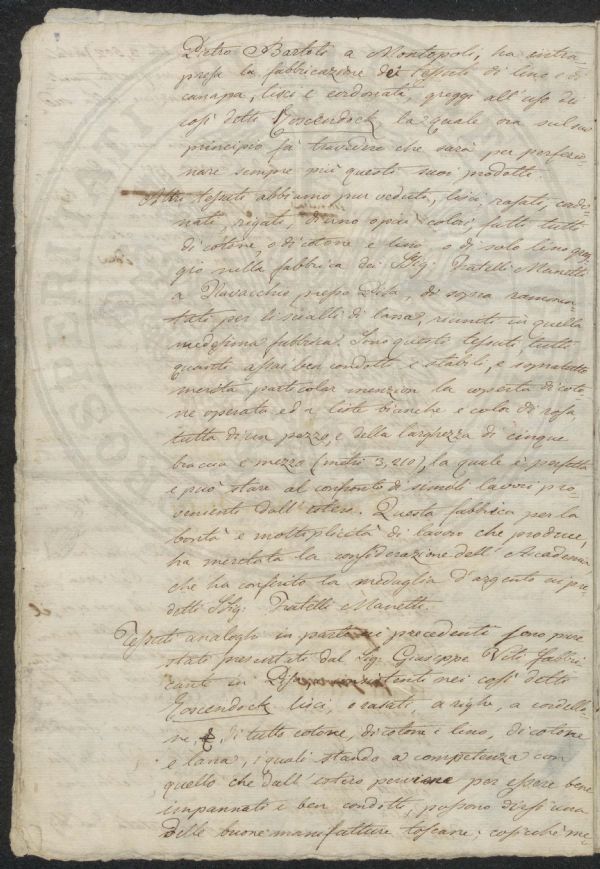 Pietro Bartoli a Montopoli, ha intra-
presa la fabbricazione dei tessuti di lino e di
canapa, lisci e cordonati, greggi all'uso dei
così detti Coscendock, la quale ora sul suo
principio fà travedere che sarà per perfezio-
nare sempre più questi suoi prodotti
Altri tessuti abbiamo pur veduti, lisci, rasati, cordo-
nati, rigati, di uno o più colori, fatti tutti
di cotone, o di cotone e lino, o di solo lino greg-
gio nella fabbrica dei Sig: Fratelli Manetti
a Navacchio presso Pisa, di sopra rammen-
tati per li scialli di lana, riuniti in quella
medesima fabbrica. Sono questi tessuti, tutti
quanti assai ben condotti e stabili, e sopratutto
merita particolar menzion la coperta di coto-
ne operata ed a liste bianche e color di rosa
tutta di un pezzo, e della larghezza di cinque
braccia e mezzo (metri 3,210), la quale è perfetta
e può stare al confronto di simili lavori pro-
venienti dall'estero. Questa fabbrica per la
bontà e moltiplicità di lavoro che produce,
ha meritata la considerazione dell'Accademia
che ha conferito la medaglia d'argento ai pre-
detti Sig: Fratelli Manetti.
Tessuti analoghi in parte ai precedenti sono pure
stati presentati dal Sig: Giuseppe Viti fabbri-
cante in Pisa consistente nei così detti
Coscendock lisci, o rasati, a righe, a cordelli-
ne, di tutto cotone, di cotone e lino, di cotone
e lana, i quali stando a competenza con
quello che dall'estero perviene per essere bene
impannati e ben condotti, possono dirsi una
delle buone manifatture toscane; cosicchè me-